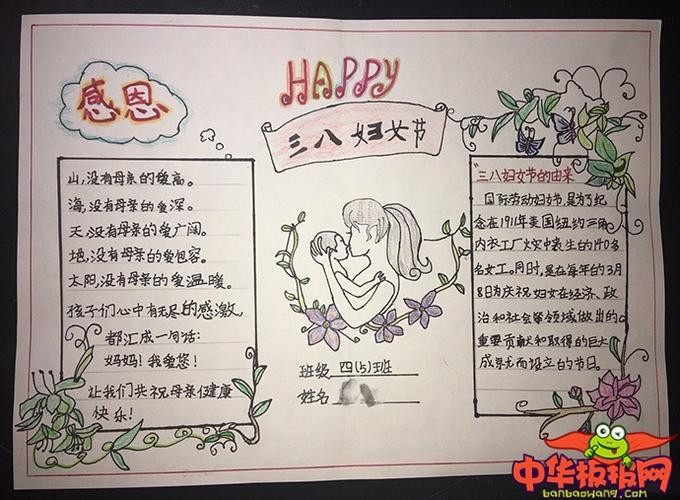 感恩
HAPPY
三八妇女节
山,没有母亲的爱高。
海,没有母亲的爱深。
天,没有母亲的爱广阔。
地,没有母亲的爱包容。
太阳,没有母亲的爱温暖。
孩子们心中有无尽的感激,
都汇成一句话:
妈妈!我爱您!
让我们共祝母亲健康
快乐!
班级 四(5)班
姓名
"三八妇女节的由来"
国际劳动妇女节,是为了纪
念在1911年美国纽约三角
内衣工厂火灾中丧生的140多
名女工。同时,是在每年的3月
8日为庆祝妇女在经济、政
治和社会等领域做出的
重要贡献和取得的巨大
成就而设立的节日。
中华板报网
banbaowang.com